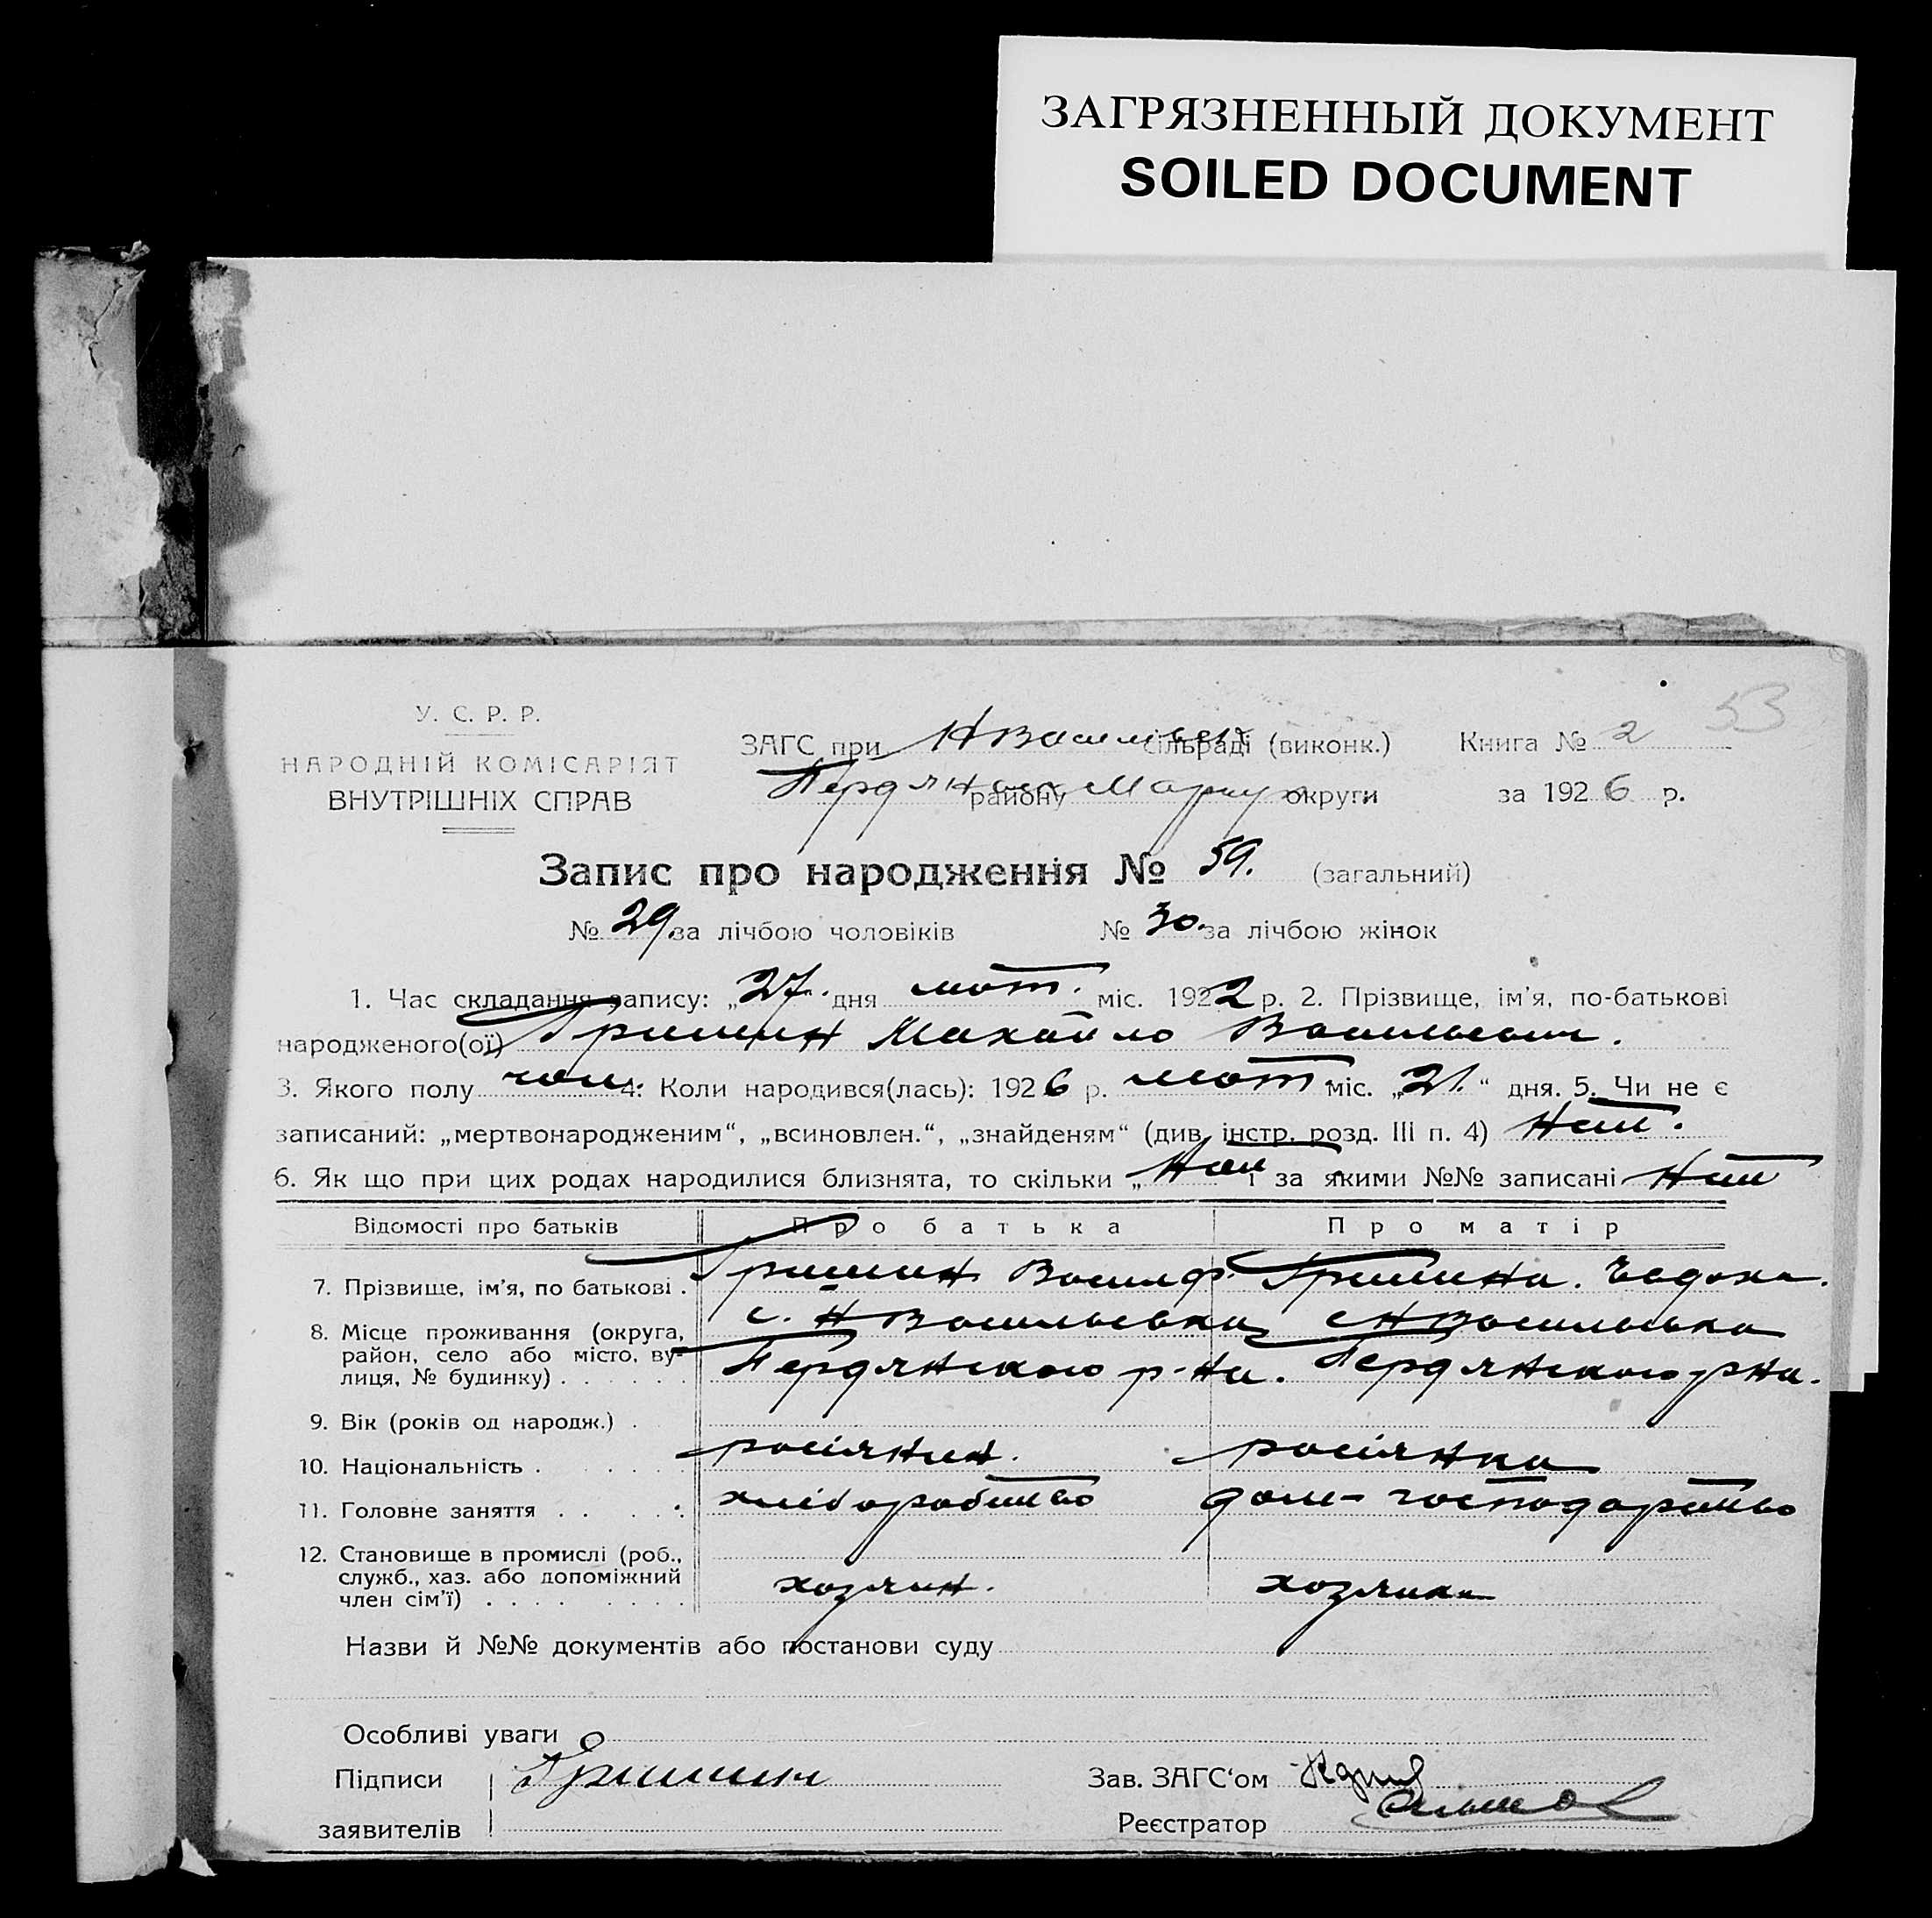 ЗАГРЯЗНЕННЫЙ ДОКУМЕНТ
SOILED DOCUMENT
53
У. С. Р. Р.
НАРОДНІЙ КОМІСАРІЯТ
ВНУТРІШНІХ СПРАВ
ЗАГС при сільраді (виконк.) Книга № 2
району округи за 1926 р.
Запис про народження № 59. (загальний)
№ 29 за лічбою чоловіків № 30. за лічбою жінок
1. Час складання запису: „27“ дня лют. міс. 1922 р. 2. Прізвище, ім'я, по-батькові
народженого(ої) Гришин Михайло Васильович.
3. Якого полу чол. 4. Коли народився(лась): 1926 р. лют міс. „21.“ дня. 5. Чи не є
записаний: „мертвонародженим“, „всиновлен.“, „знайденям“ (див. інстр. розд. III п. 4) Ні.
6. Як що при цих родах народилися близнята, то скільки „ і за якими №№ записані
Відомості про батьків Про батька Про матір
7. Прізвище, ім'я, по батькові . Гришин Василь Гришина.
8. Місце проживання (округа, с. Н Васильевка с Н Васильевка
район, село або місто, ву-
лиця, № будинку) . . . . . . Бердянского р-на. Бердянского рна.
9. Вік (років од народж.) .
10. Національність . росіянин. росіянка
11. Головне заняття . . . . хліборобство дом-господарство
12. Становище в промислі (роб.,
служб., хаз. або допоміжний хозяин. хозяика
член сім'ї) . . . . . . . .
Назви й №№ документів або постанови суду
Особливі уваги
Підписи Гришин Зав. ЗАГС'ом
заявителів Реєстратор